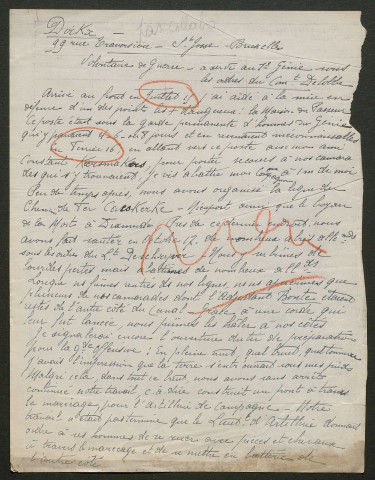 Dirkx
99 rue Traversière - St Josse - Bruxelles
Volontaire de Guerre - a servi au 1er Génie sous
les ordres du Comt Delobbe
Arrivé au front en juillet 15 j'ai aidé à la mise en
défense d'un des points les + dangereux: la Maison du Passeur
Ce poste était sous la garde permanente d'hommes du Génie
qui y passaient 4-6 ou 8 jours et en revenaient méconnaissables
en Février 16 en allant vers ce poste avec mon ami
Constant pour porter secours à nos camara
des qui s'y trouvaient. Je vis abattre mon à 1 m de moi
Peu de temps après, nous avons organisé la ligne du
Chemin de Fer Caeskerke - Nieuport ainsi que le boyau
de la Mort à Dixmude. Près de ce dernier endroit, nous
avons fait sauter en 12 de nombreux abris
sous les ordres du Lt Nous subîmes de
lourdes pertes mais de nombreux
Lorsque nous fûmes rentrés dans nos lignes, nous apprîmes que
plusieurs de nos camarades dont l'Adjudant étaient
restés de l'autre côté du canal - Grâce à une corde qui
leur fut lancée, nous pûmes les haler à nos côtés
Je signalerai encore l'ouverture du tir de préparation
pour la gde offensive: En pleine nuit, quel bruit, quel tonnerre
j'avais l'impression que la terre s'entrouvrait sous nos pieds
Malgré cela dans tout ce bruit, nous avons sans arrêt
continué notre travail c.à.dire construire un pont à travers
le marécage pour l'artillerie de campagne - Notre
travail n'était pas terminé que le Lieut. d'Artillerie donnait
ordre à ses hommes de se ruer avec pièces et chevaux
à travers le marécage et de se mettre en batterie de
l'autre côté